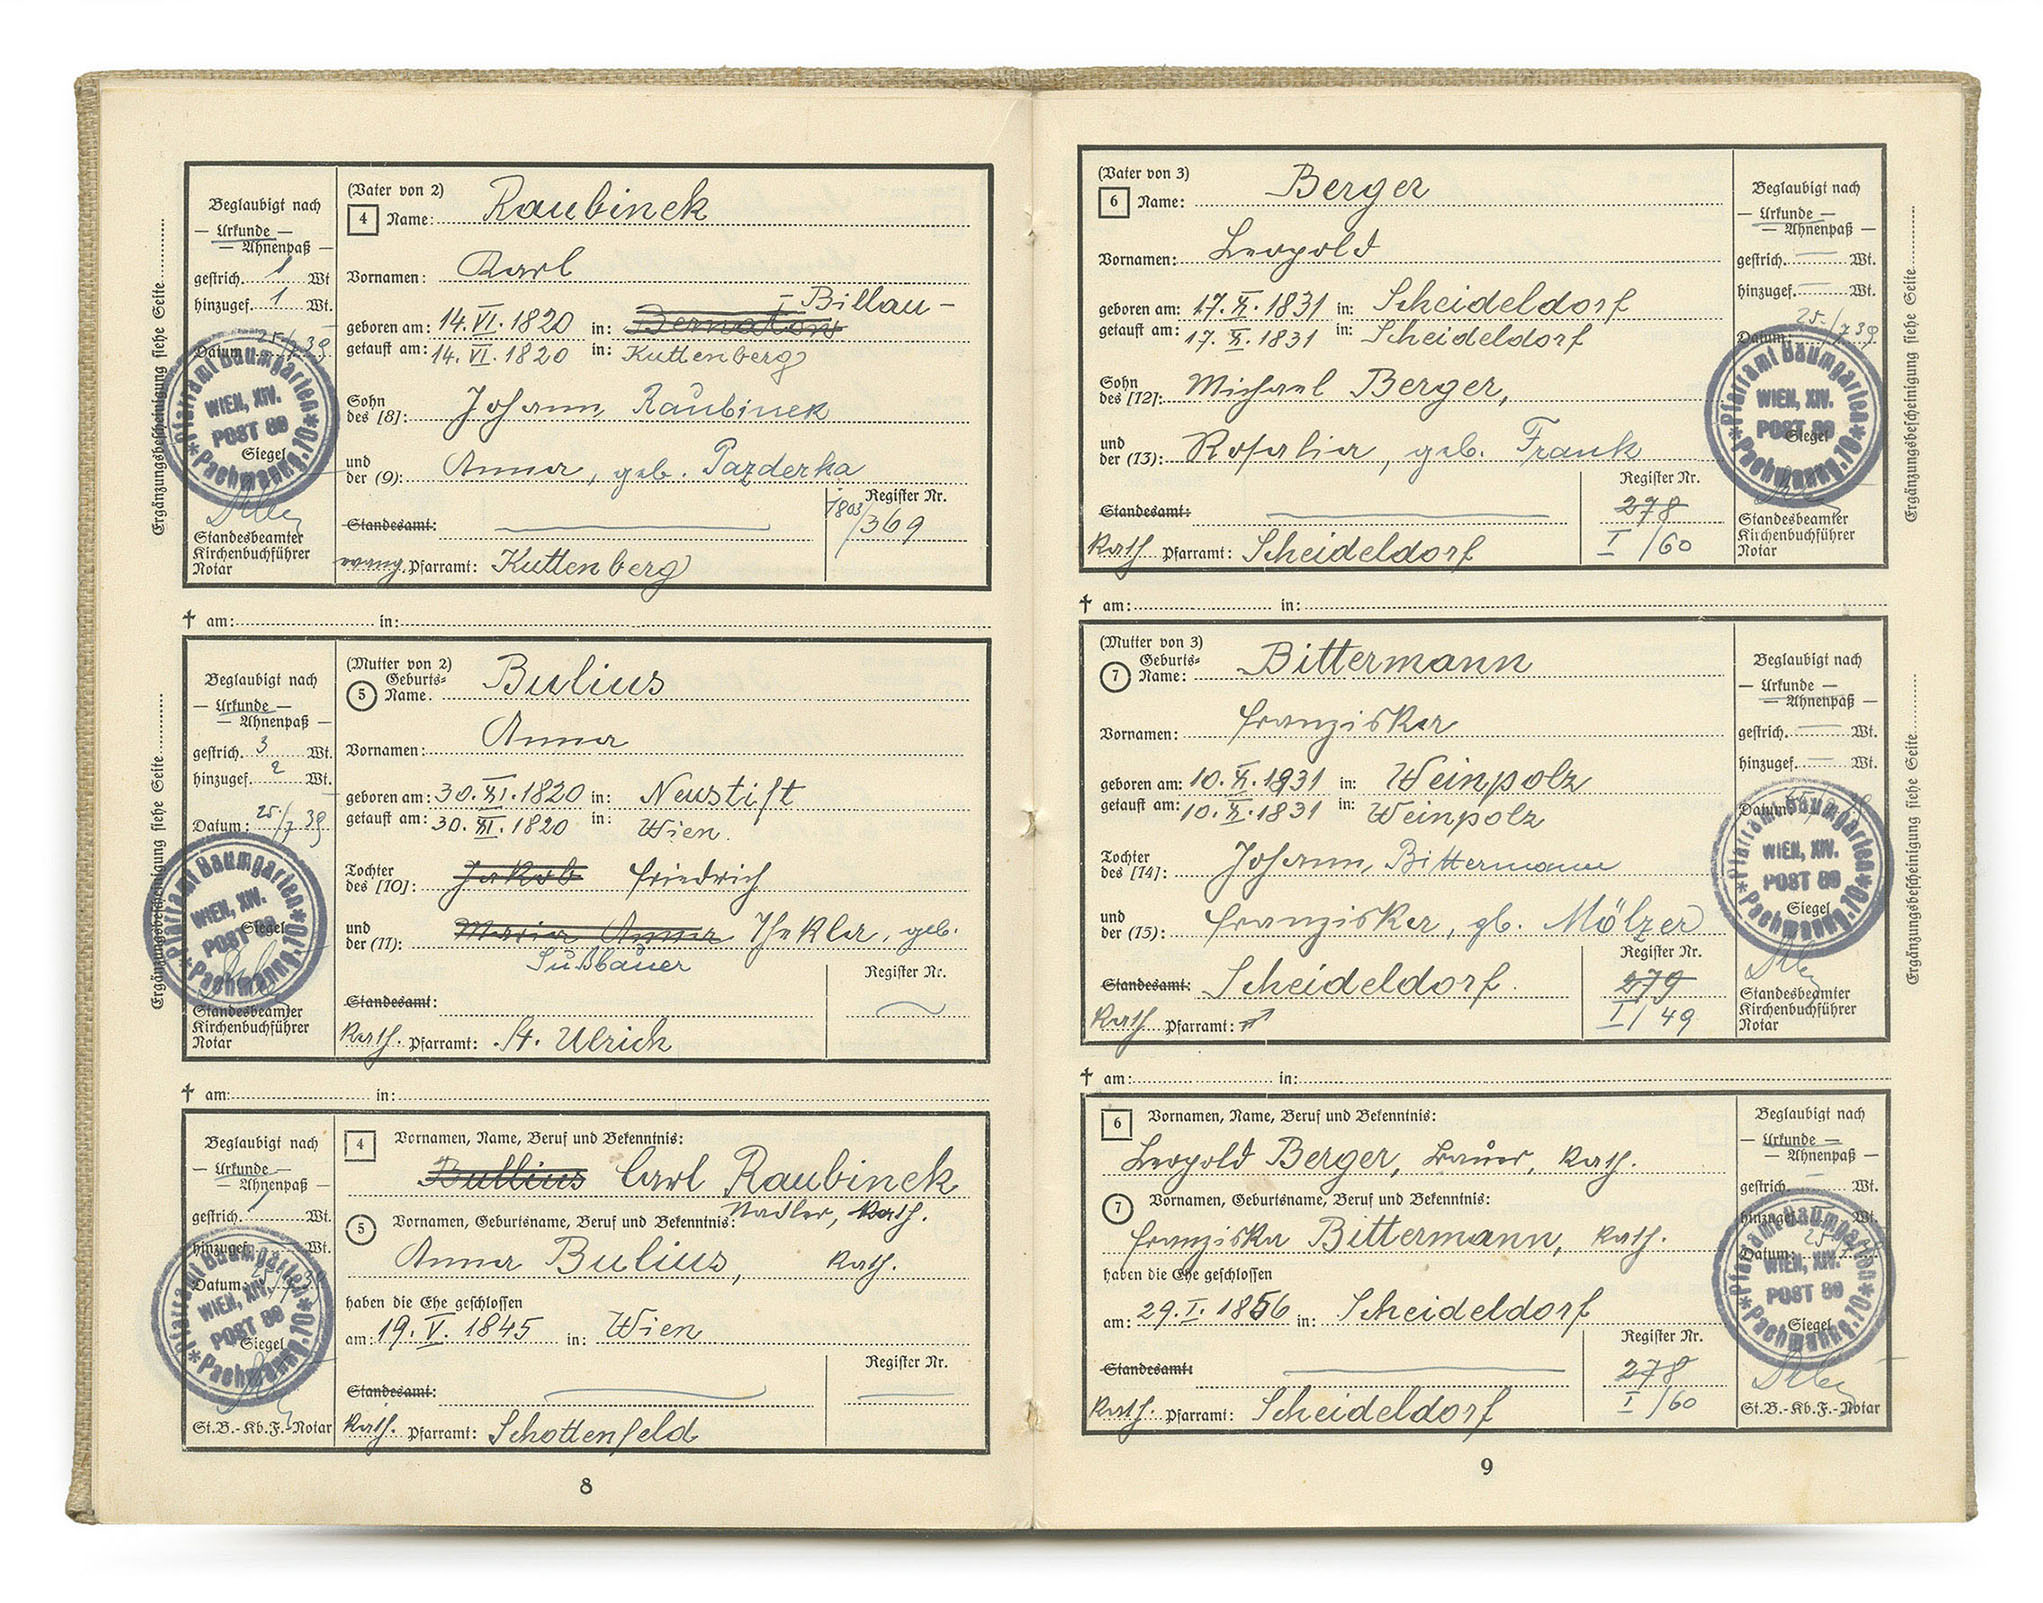 Ergänzungsbescheinigung siehe Seite
Beglaubigt nach
— Urkunde —
— Ahnenpaß —
gestrich. 1 Wt
hinzugef. 1 Wt.
Datum 25/7 39
Pfarramt Baumgarten
WIEN, XIV.
POST 89
Pachmanng. 70
Siegel
Standesbeamter
Kirchenbuchführer
Notar
(Vater von 2)
4 Name: Raubinek
Vornamen: Karl
Billau
geboren am: 14. VI. 1820 in:
getauft am: 14. VI. 1820 in: Kuttenberg
Sohn
des [8]: Johann Raubinek
und
der (9): Anna, geb. Pazderka
Register Nr.
1803/369
Standesamt:
Pfarramt: Kuttenberg
† am: in:
Ergänzungsbescheinigung siehe Seite
Beglaubigt nach
— Urkunde —
— Ahnenpaß —
gestrich. 3 Wt.
hinzugef. 2 Wt.
Datum: 25/7 39
Pfarramt Baumgarten
WIEN, XIV.
POST 89
Pachmanng. 70
Siegel
Standesbeamter
Kirchenbuchführer
Notar
(Mutter von 2)
Geburts=
5 Name. Bulius
Vornamen: Anna
geboren am: 30. XI. 1820 in: Neustift
getauft am: 30. XI. 1820 in: Wien.
Tochter
des [10]: Jakob Friedrich
und
der (11): Maria Anna Thekla, geb.
Sußbauer
Register Nr.
Standesamt:
Kath. Pfarramt: St. Ulrich
† am: in:
Beglaubigt nach
— Urkunde —
— Ahnenpaß —
gestrich. 1 Wt.
hinzugef. Wt.
Datum:
Pfarramt Baumgarten
WIEN, XIV.
POST 89
Pachmanng. 70
Siegel
St.B.-Kb.F.-Notar
4 Vornamen, Name, Beruf und Bekenntnis:
Bullius Carl Raubinek
Nadler, Kath.
5 Vornamen, Geburtsname, Beruf und Bekenntnis:
Anna Bulius, Kath.
haben die Ehe geschlossen
am: 19. V. 1845 in: Wien
Register Nr.
Standesamt:
Kath. Pfarramt: Schottenfeld
8
(Vater von 3)
6 Name: Berger
Vornamen: Leopold
geboren am: 17. X. 1831 in: Scheideldorf
getauft am: 17. X. 1831 in: Scheideldorf
Sohn
des [12]: Michael Berger,
und
der (13): Rosalia, geb. Frank
Register Nr.
278
I/60
Standesamt:
Kath Pfarramt: Scheideldorf
Beglaubigt nach
— Urkunde —
— Ahnenpaß —
gestrich. — Wt.
hinzugef. — Wt.
Datum: 25./7 39
Pfarramt Baumgarten
WIEN, XIV.
POST 89
Pachmanng. 70
Siegel
Standesbeamter
Kirchenbuchführer
Notar
Ergänzungsbescheinigung siehe Seite
† am: in:
(Mutter von 3)
Geburts=
7 Name: Bittermann
Vornamen: Franziska
geboren am: 10. X. 1831 in: Weinpolz
getauft am: 10. X. 1831 in: Weinpolz
Tochter
des [14]: Johann Bittermann
und
der (15): Franziska, gb. Mölzer
Register Nr.
279
I/49
Standesamt: Scheideldorf.
Kath Pfarramt:
Beglaubigt nach
— Urkunde —
— Ahnenpaß —
gestrich. — Wt.
hinzugef. — Wt.
Datum
Pfarramt Baumgarten
WIEN, XIV.
POST 89
Pachmanng. 70
Siegel
Standesbeamter
Kirchenbuchführer
Notar
Ergänzungsbescheinigung siehe Seite
† am: in:
6 Vornamen, Name, Beruf und Bekenntnis:
Leopold Berger, Bauer, Kath.
7 Vornamen, Geburtsname, Beruf und Bekenntnis:
Franziska Bittermann, Kath.
haben die Ehe geschlossen
am: 29. I. 1856 in: Scheideldorf
Register Nr.
278
I/60
Standesamt:
Kath. Pfarramt: Scheideldorf
Beglaubigt nach
— Urkunde —
— Ahnenpaß —
gestrich. Wt.
hinzugef. Wt.
Datum:
Pfarramt Baumgarten
WIEN, XIV.
POST 89
Pachmanng. 70
Siegel
St.B.-Kb.F.-Notar
9